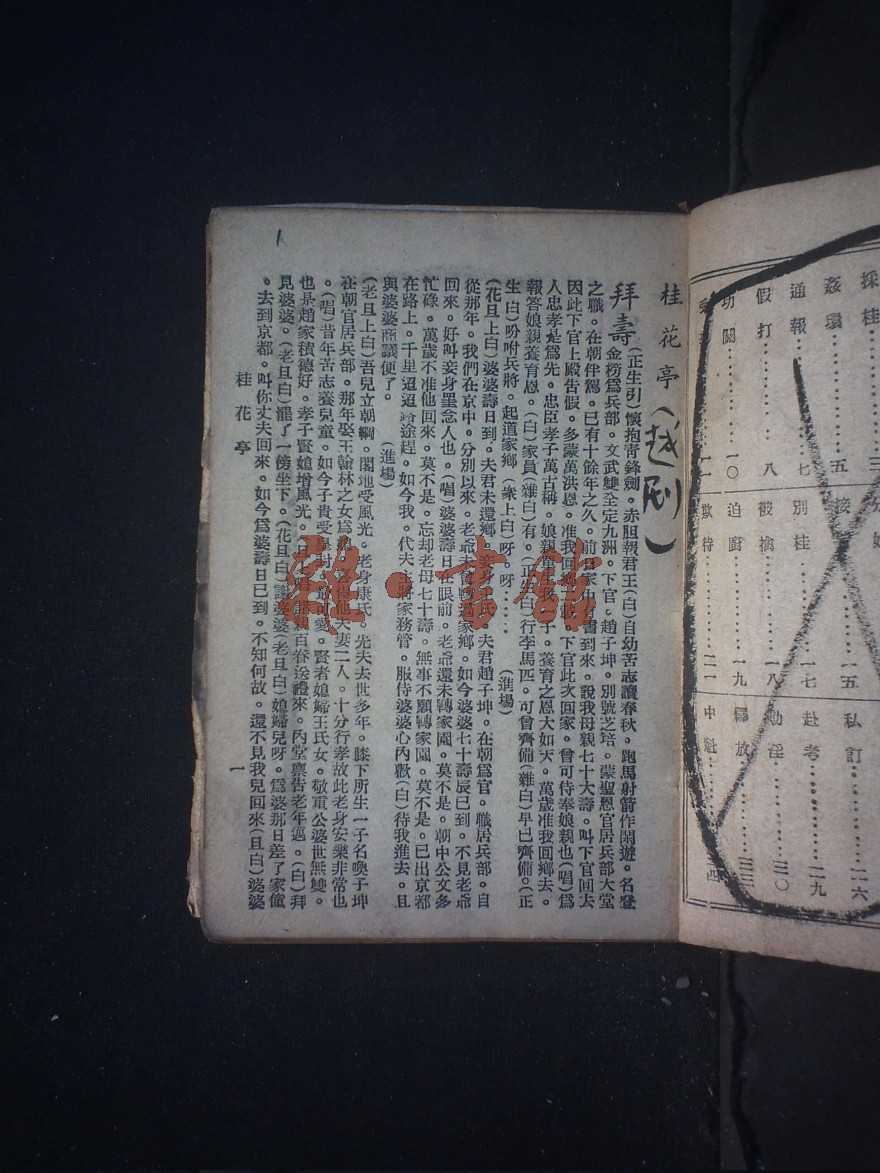 桂花亭（越剧）
拜壽
（正生引）懷抱青鋒劍。赤胆報君王（白）自幼苦志讀春秋。跑馬射箭作閑遊。名登
金榜爲兵部。文武雙全定九洲。下官。趙子坤。別號芝培。蒙聖恩官居兵部大堂
之職。在朝伴駕。已有十餘年之久。前 家中 書到來。說我母親七十大壽。叫下官回去
因此下官上殿告假。多蒙萬洪恩。准我回鄉 。下官此次回家。曾可侍奉娘親也（唱）爲
人忠孝是爲先。忠臣孝子萬古稱。娘親單 我 子。養育之恩大如天。萬歲准我回鄉去。
報答娘親養育恩。（白）家員（雜白）有。（正白）行李馬匹。可曾齊備（雜白）早已齊備。（正
生白）吩咐兵將。起道家鄉（衆上白）呀。呀……（進場）
（花旦上白）婆婆壽日到。夫君未還鄉。妾身王氏。夫君趙子坤。在朝爲官。職居兵部。自
從那年。我們在京中。分別以來。老爺未曾轉過家鄉。如今婆婆七十壽辰已到。不見老爺
回來。好叫妾身罣念人也。（唱）婆婆壽日在眼前。老爺還未轉家園。莫不是。朝中公文多
忙碌。萬歲不准他回來。莫不是。忘却老母七十壽。無事不願轉家園。莫不是。已出京都
在路上。千里迢迢 途趕。如今我。代夫 將家務管。服侍婆婆心內歡（白）待我進去。且
與婆婆商議便了。（進場）
（老旦上白）吾兒立朝綱。閤地受風光。老身康氏。先夫去世多年。膝下所生一子名喚子坤
在朝官居兵部。那年娶王翰林之女爲 。 得他夫妻二人。十分行孝故此老身安樂非常也
。（唱）昔年苦志養兒童。如今子貴受皇封。 最可愛。賢者媳婦王氏女。敬重公婆世無雙。
也是趙家積德好。孝子賢媳增風光。 諸親百眷送禮來。內堂禀告老年邁。（白）拜
見婆婆。（老旦白）罷了一傍坐下。（花旦白）謝婆婆（老旦白）媳婦兒呀。爲婆那日差了家僮
。去到京都。叫你丈夫回來。如今爲婆壽日已到。不知何故。還不見我兒回來（旦白）婆婆
桂花亭
一
雜·书馆
採桂 三
姦環 五
通報 七
假打 八
功關 一〇
接 一五
別桂 一七
被擒 一八
迫嗣 一九
欵待 二一
私訂 二六
赴考 二九
勸淫 三〇
釋放
中魁